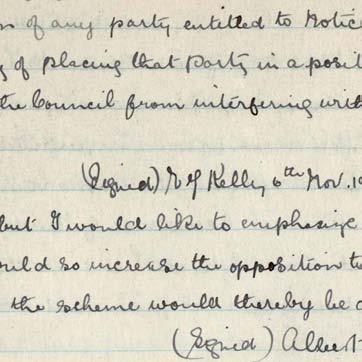 of any party entitled to Notice
of placing that Party in a posit
the Council from interfering
(Signed) Kelly 6th Nov. 19
but I would like to emphasize
ould so increase the opposition to
the scheme would thereby be
(Signed) Albert